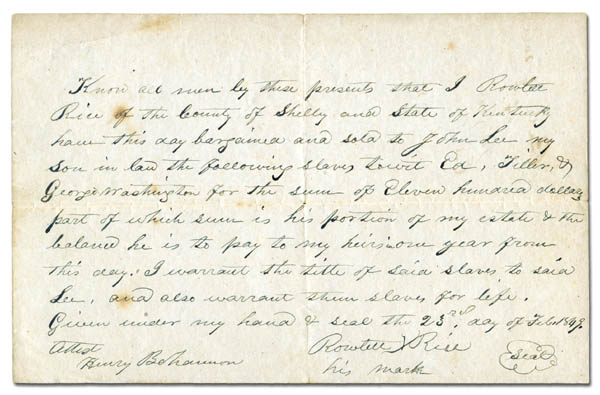 Know all men by these presents that I Rowlett
Rice of the County of Shelby and State of Kentucky
have this day bargained and sold to John Lee my
Son in law the following slaves towit Ed, Tiller, &
George Washington for the sum of Eleven hundred dollars
part of which sum is his portion of my estate & the
balance he is to pay to my heirs one year from
this day. I warrant the title of said slaves to said
Lee, and also warrant them slaves for life.
Given under my hand & seal the 23rd day of Feb.
Attest Rowlett X Rice Seal
Henry Bohannon his mark